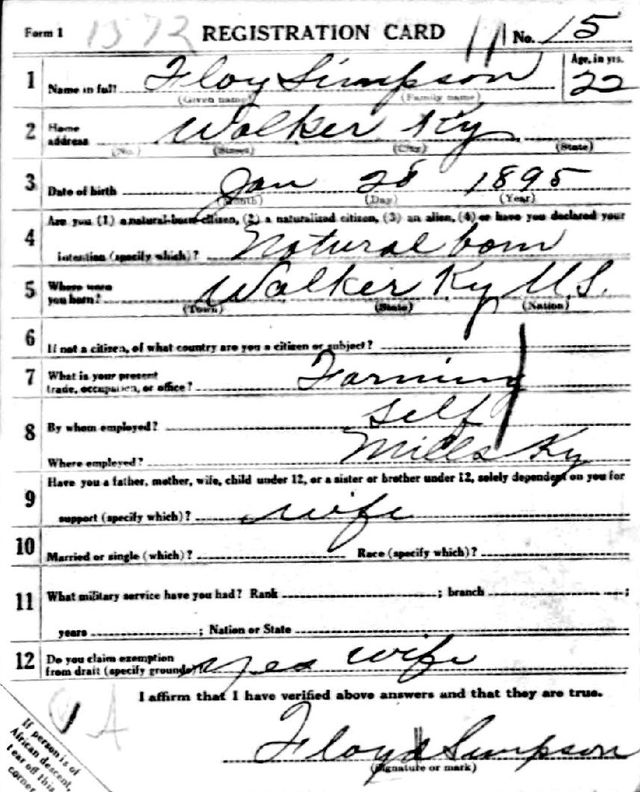 Form 1 1572 REGISTRATION CARD No. 15
1 Name in full Floy Simpson Age, in yrs. 22
(Given name) (Family name)
2 Home address Walker Ky
(No.) (Street) (City) (State)
3 Date of birth Jan 28 1895
(Month) (Day) (Year)
4 Are you (1) a natural-born citizen, (2) a naturalized citizen, (3) an alien, (4) or have you declared your
intention (specify which)? Natural born
5 Where were you born? Walker Ky U.S.
(Town) (State) (Nation)
6 If not a citizen, of what country are you a citizen or subject?
7 What is your present trade, occupation, or office? Farming
8 By whom employed? Self
Where employed? Mills Ky
9 Have you a father, mother, wife, child under 12, or a sister or brother under 12, solely dependent on you for
support (specify which)? wife
10 Married or single (which)? Race (specify which)?
11 What military service have you had? Rank ; branch ;
years ; Nation or State
12 Do you claim exemption from draft (specify grounds)? Yes wife
I affirm that I have verified above answers and that they are true.
If person is of
African descent,
tear off this
corner
Floyd Simpson
(Signature or mark)